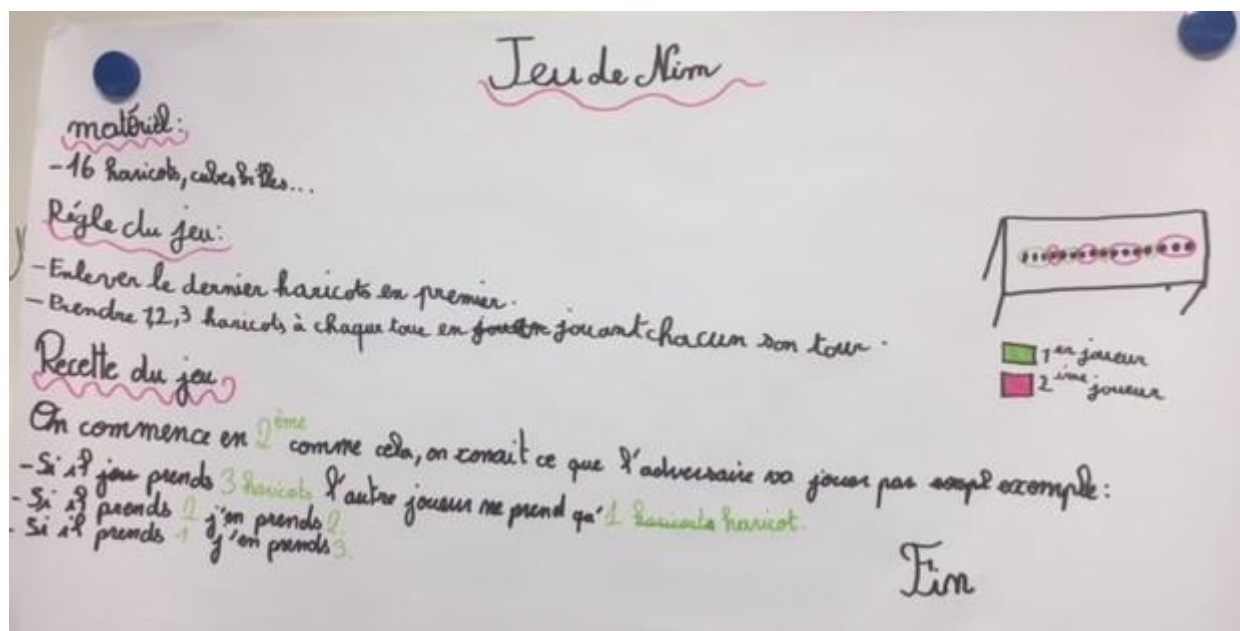 Jeu de Nim
matériel:
- 16 haricots, cubes billes...
Régle du jeu:
- Enlever le dernier haricots en premier.
- Prendre 1,2,3 haricots à chaque tour en jouant chacun son tour.
1er joueur
2ème joueur
Recette du jeu
On commence en 2ème comme cela, on conait ce que l'adversaire va jouer par exemple:
- Si il prends 3 haricots l'autre joueur ne prend qu'1 haricot.
- Si il prends 2 j'en prends 2.
- Si il prends 1 j'en prends 3.
Fin